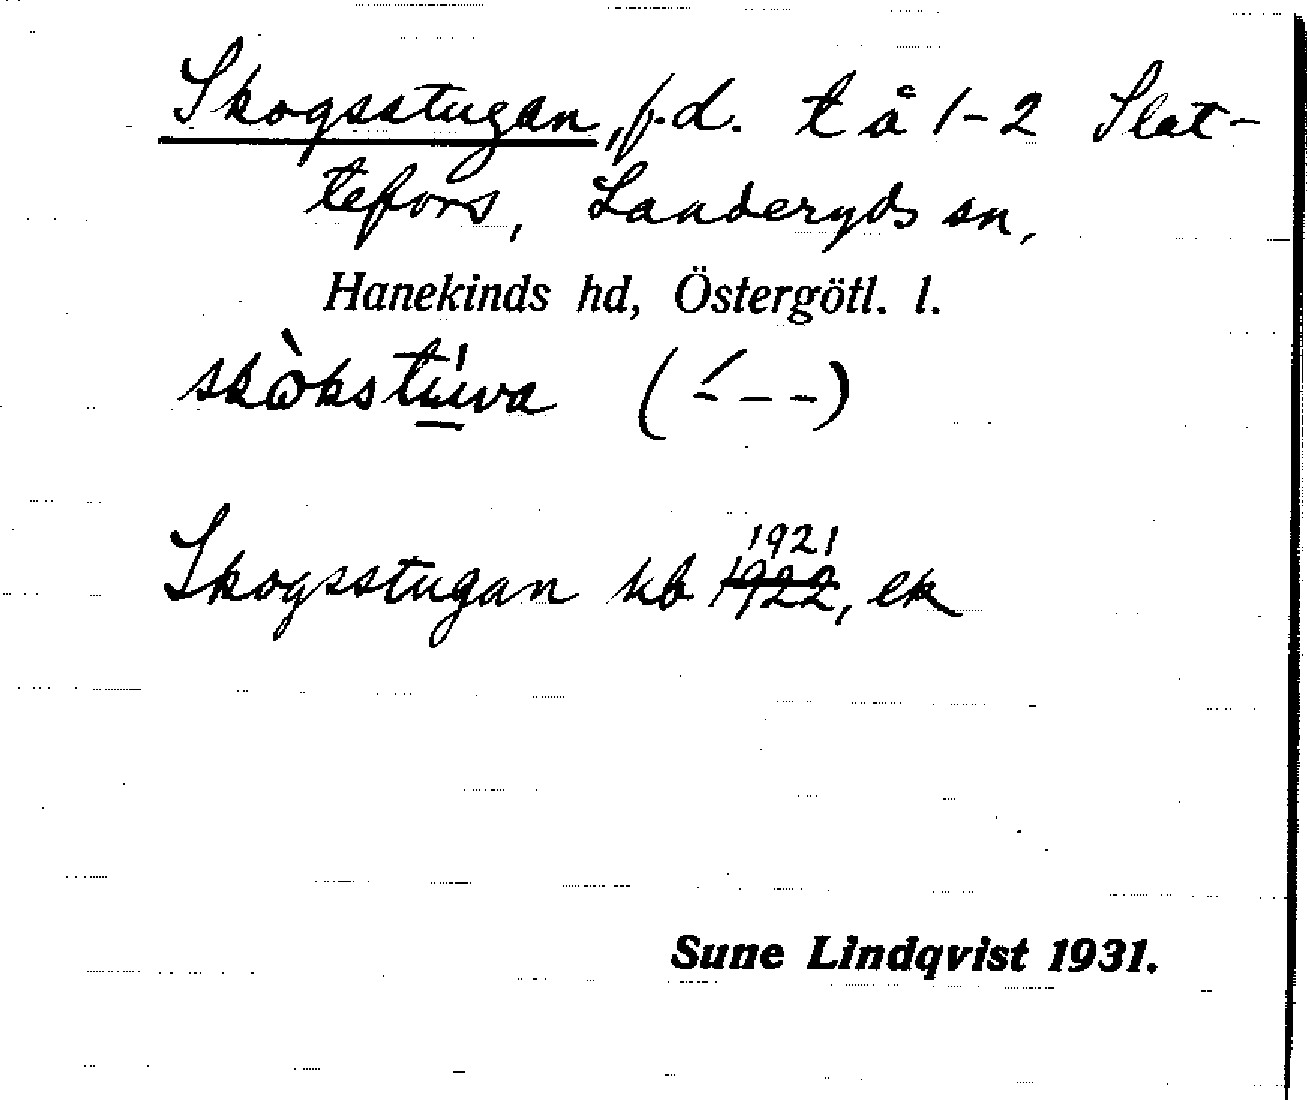 Skogsstugan, f.d. t å 1-2 Slat-
tefors, Landeryds sn,
Hanekinds hd, Östergötl. l.
skὼkstúwa (-́ - -)
1921
Skogsstugan kb 1922, ek
Sune Lindqvist 1931.